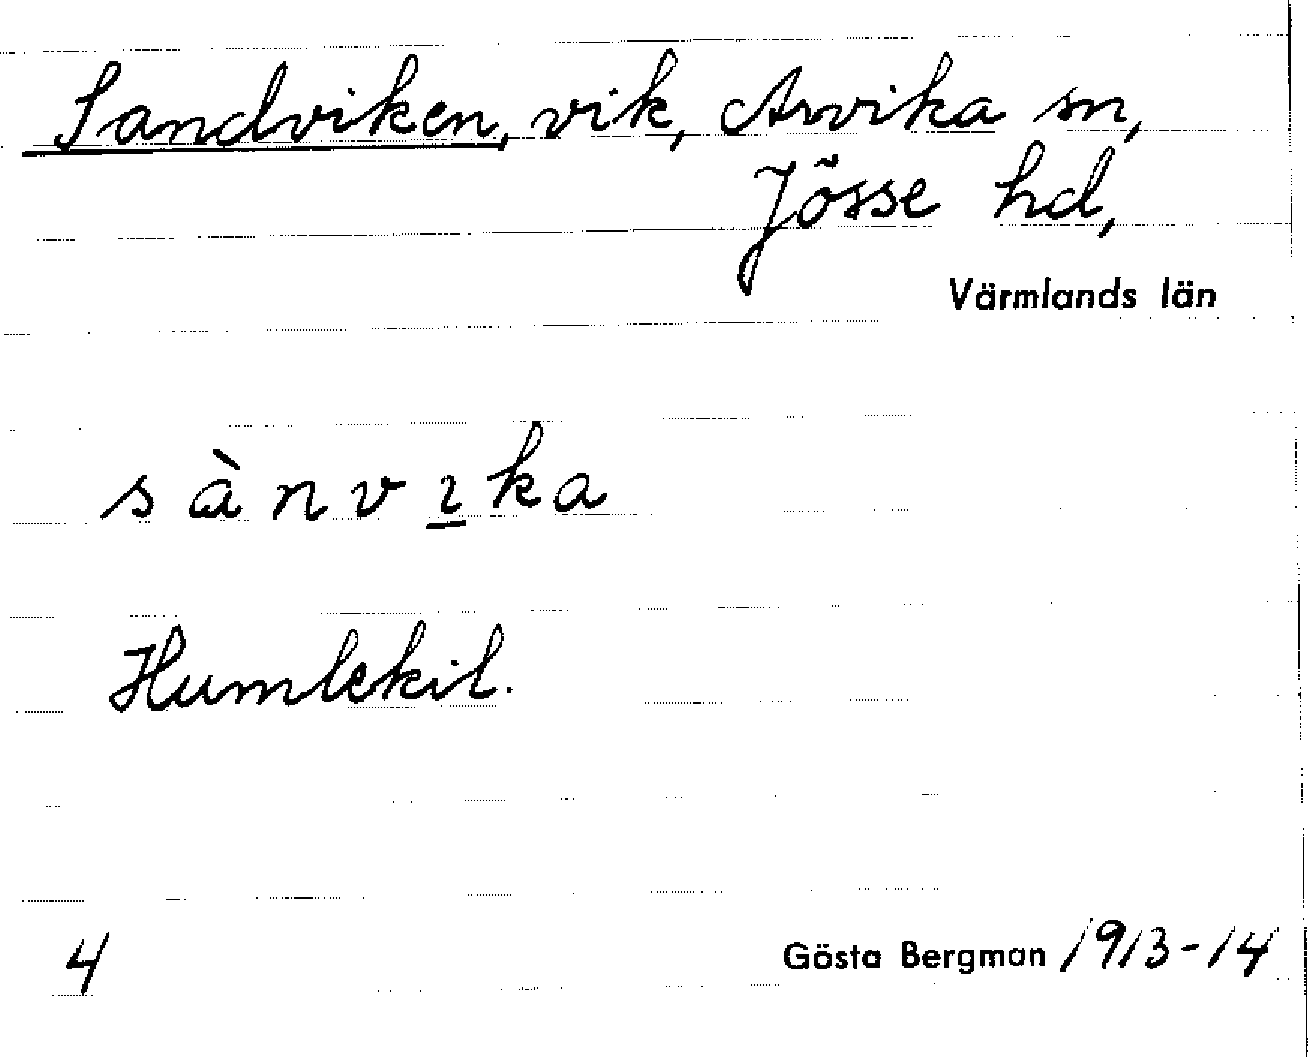 Sandviken, vik, Arvika sn,
Jösse hd,
Värmlands län
sànvıka
Humlekil.
4
Gösta Bergman 1913-14